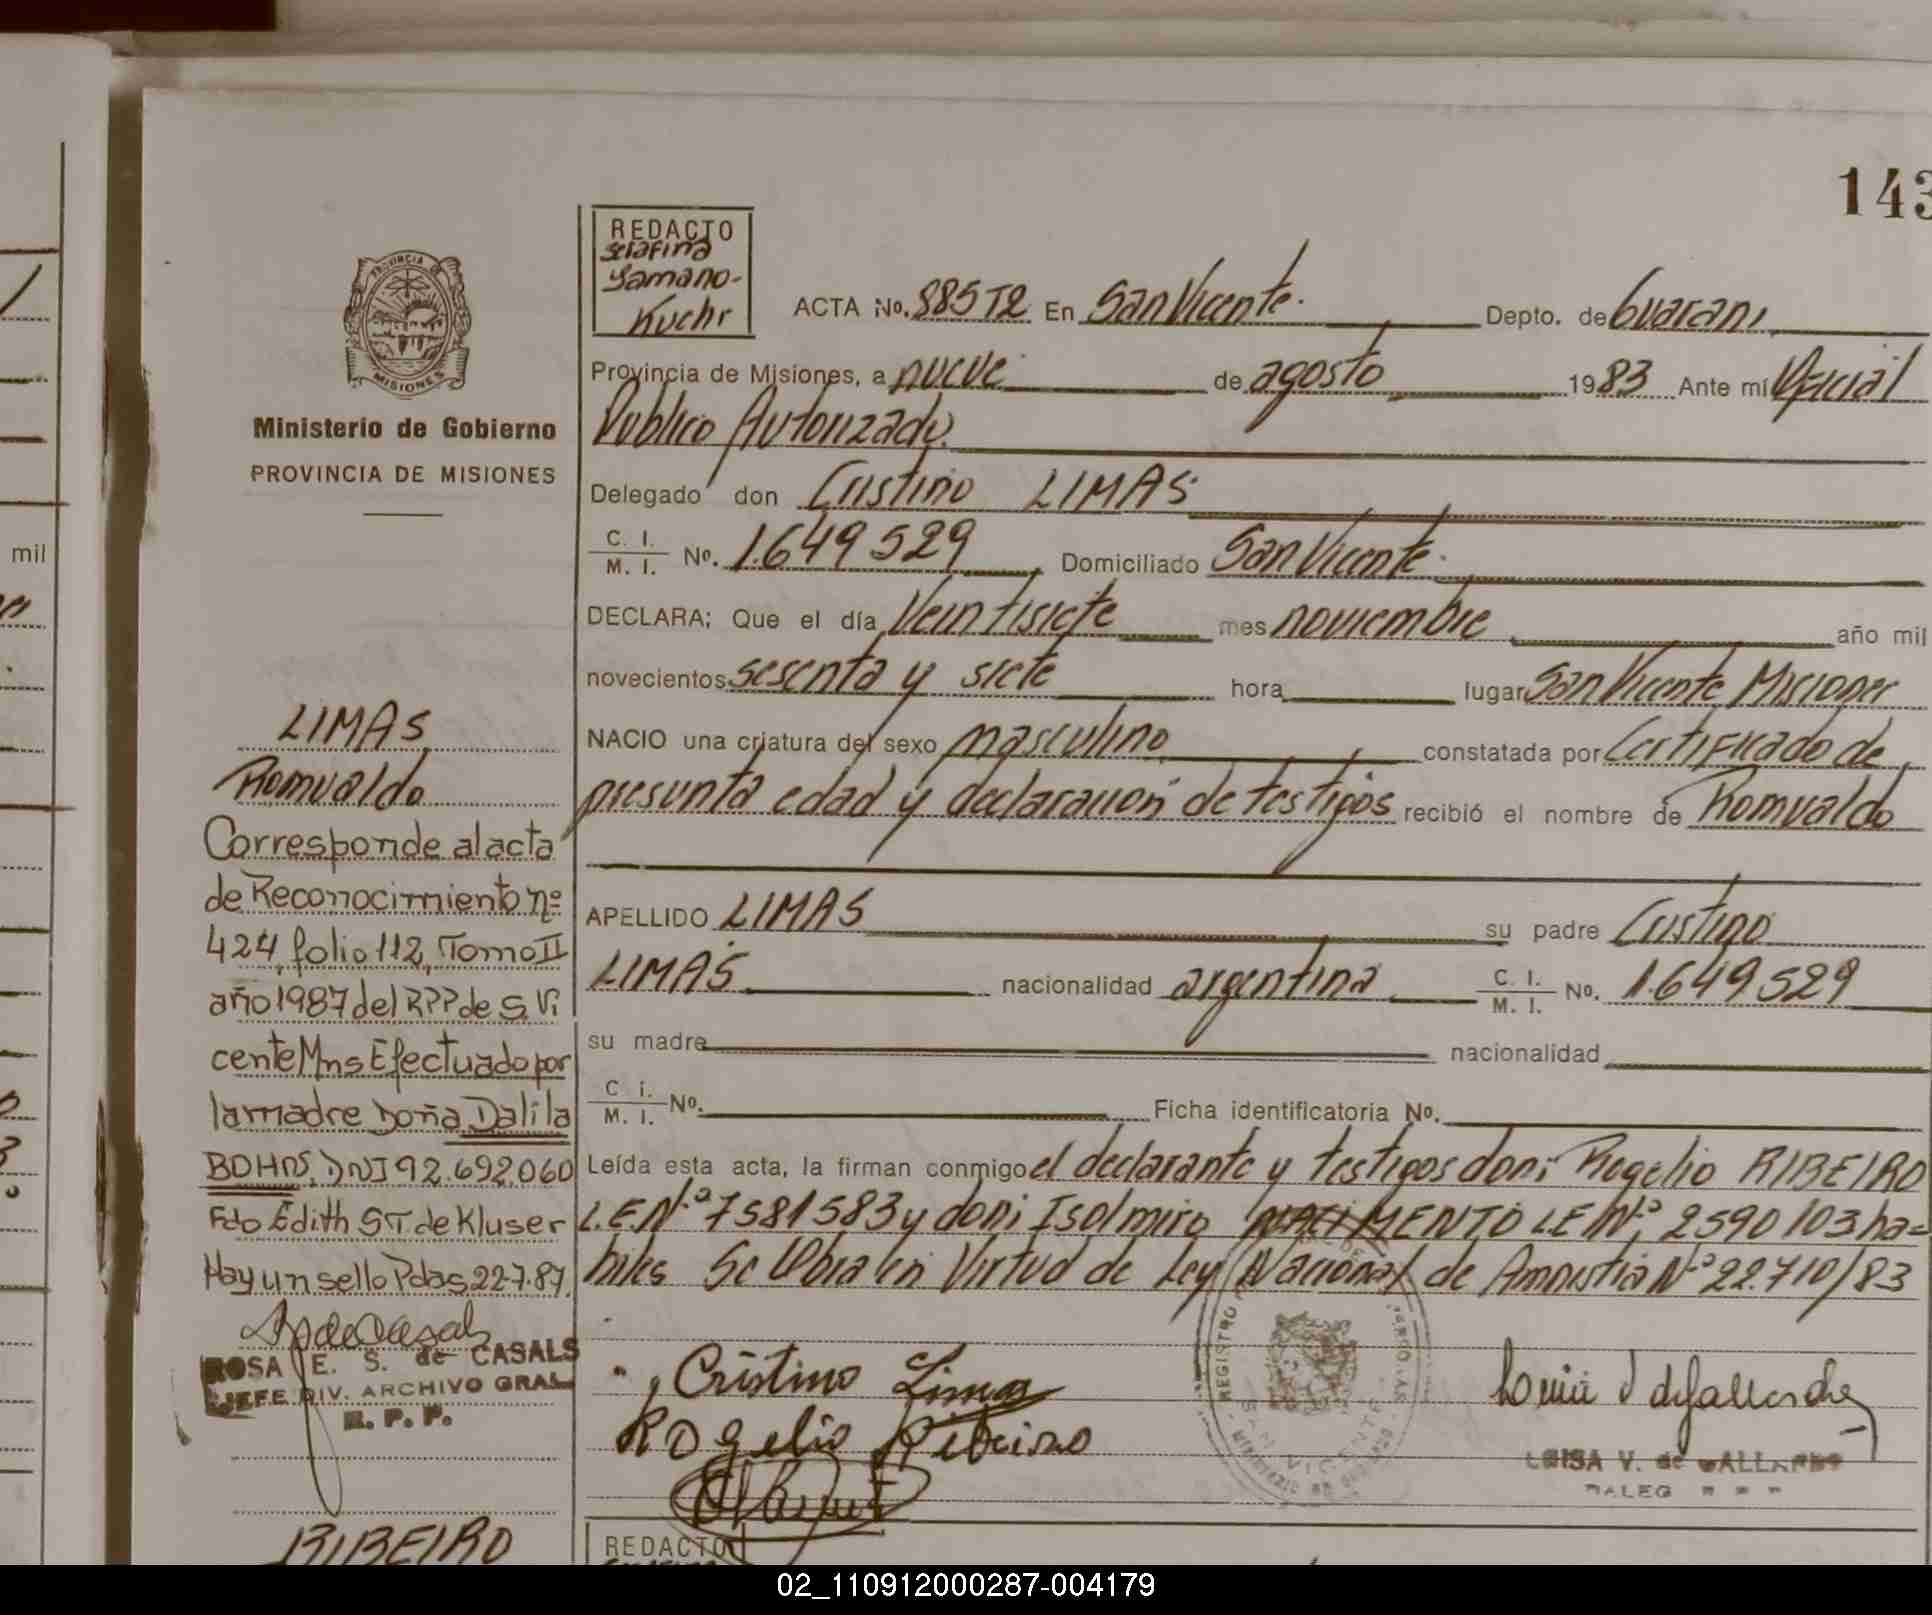 143
REDACTO
Serafina
Yamano-
Kuchr
PROVINCIA DE
MISIONES
Ministerio de Gobierno
PROVINCIA DE MISIONES
ACTA No. 885T2 En San Vicente. Depto. de Guarani
Provincia de Misiones, a nueve de agosto 1983 Ante mí Oficial
Publico Autorizado.
Delegado don Cristino LIMAS
C. I. M. I. No. 1.649.529 Domiciliado San Vicente.
DECLARA; Que el día Veintisiete mes noviembre año mil
novecientos sesenta y siete hora lugar San Vicente Misiones
NACIO una criatura del sexo masculino constatada por Certificado de
presunta edad y declaracion de testigos recibió el nombre de Romualdo
APELLIDO LIMAS su padre Cristino
LIMAS nacionalidad argentina C. I. M. I. No. 1.649.529
su madre nacionalidad
C. I. M. I. No. Ficha identificatoria No.
Leída esta acta, la firman conmigo el declarante y testigos don: Rogelio RIBEIRO
L.E.Nº 7581583 y don: Isolmiro LE Nº 2590103 ha=
biles Se Labra en Virtud de Ley Nacional de Amnistia Nº 22.710/83
Cristino Limas
ROgelio Ribeiro
LUISA V. de GALLARDO
LIMAS
Romualdo
Corresponde al acta
de Reconocimiento nº
424, folio 112, Tomo II
año 1987 del RPP de S. Vi
cente Mns Efectuado por
la madre Doña Dalila
BOHNS, DNI 92.692.060
Fdo Edith S.T. de Kluser
Hay un sello Pdas 22.7.87.
ROSA E. S. de CASALS
JEFE DIV. ARCHIVO GRAL
R. P. P.
RIBEIRO
REDACTO
mil
02_110912000287-004179